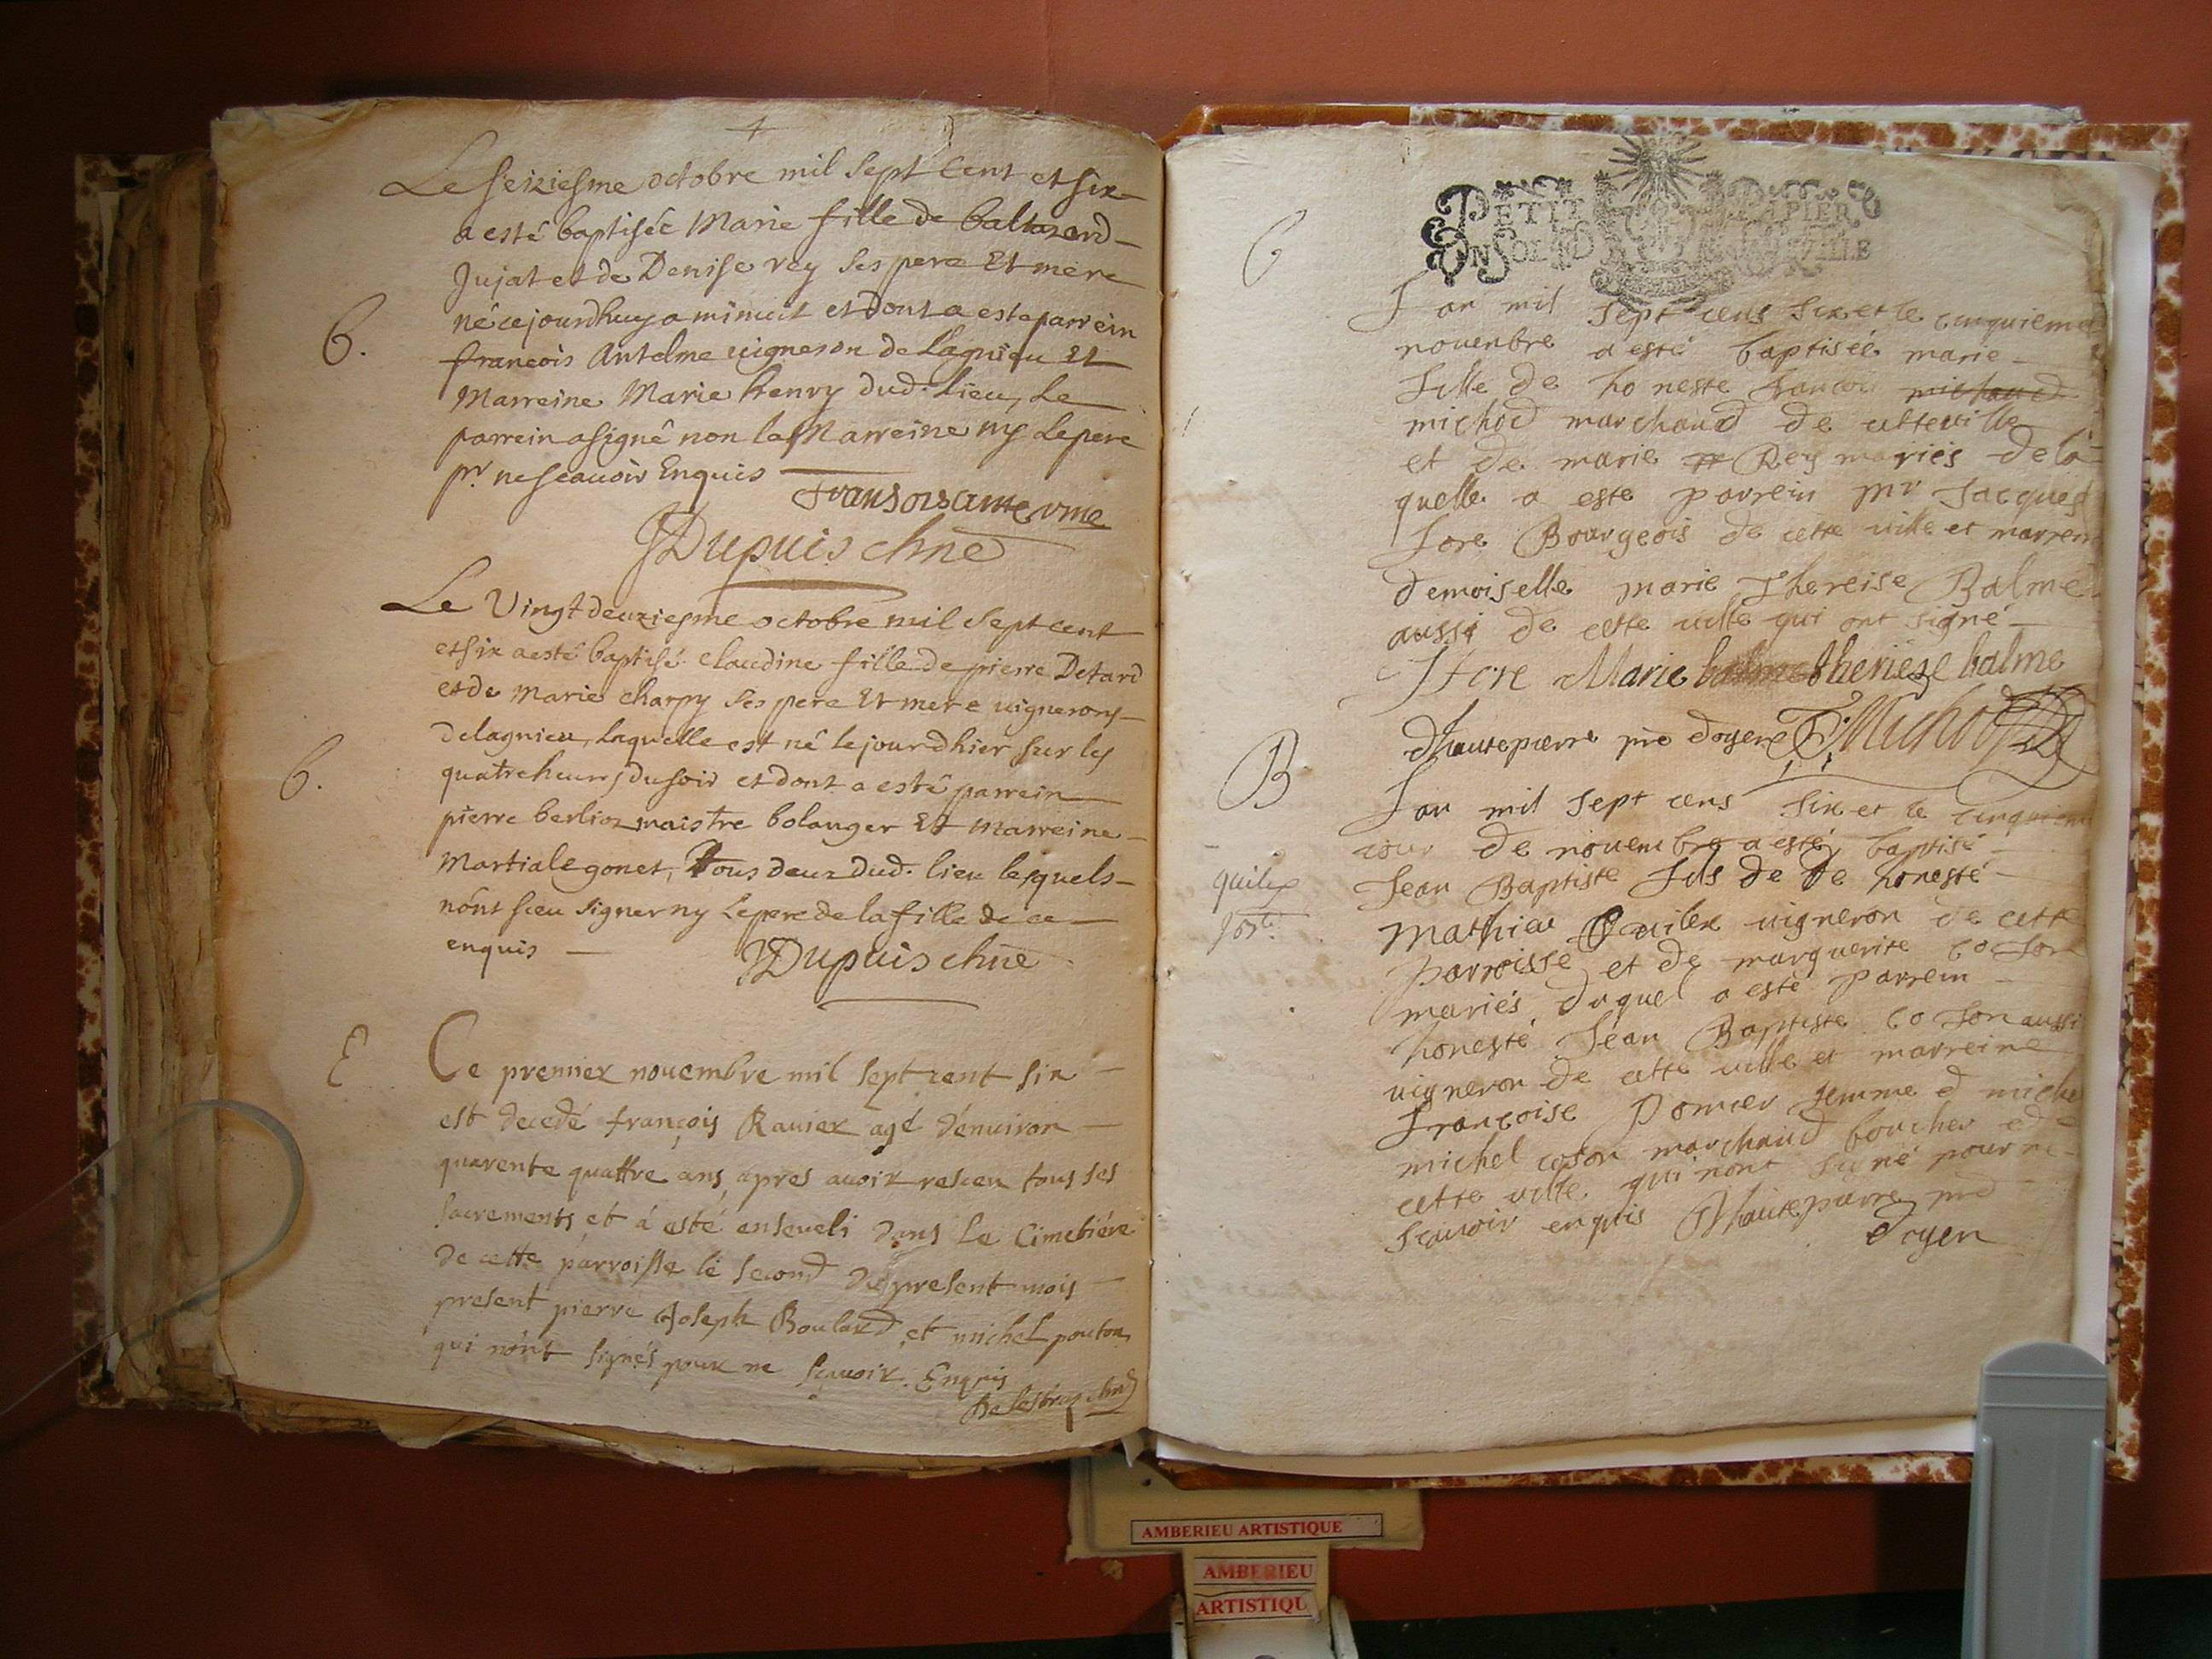 Le seiziesme octobre mil sept Cent et six
a esté baptisée Marie fille de baltazard
Jujat et de Denise rey ses pere Et mere
né ce jourdhuy a minuit et dont a esté parrein
francois Antelme vigneron de Lagnieu Et
Marreine Marie henry dud. Lieu, Le
parrein a signé non la Marreine ny Le pere
pr. ne scauoir Enquis
6.
JDupuis chne
Le Vingt deuxiesme octobre mil sept cent
et six a esté baptisé claudine fille de pierre Detard
et de Marie charpy ses pere Et mere vignerons
de lagnieu, Laquelle est né le jour dhier sur les
quatre heures du soir et dont a esté parrein
pierre berlioz maistre bolanger Et Marreine
Martiale gonet, Tous deux Dud. lieu lesquels
n'ont sceu signer ny Le pere de la fille de ce
enquis
6.
JDupuis chne
E
Ce premier nouembre mil sept cent six
est decedé françois Rauier agé d'enuiron
quarente quattre ans, apres auoir resceu tous ses
sacrements et á esté enseueli dans Le Cimetiére
de cette parroisse le second du present mois
present pierre Joseph Boulard et michel pouton
qui n'ont signés pour ne scauoir. Enquis
PETIT PAPIER
UN SOL LA FEUILLE
6
Lan mil sept cens six et le cinquieme
nouenbre a esté baptiséé marie
fille de honeste francois michaud
michod marchand de cette ville
et de marie Rey mariés de la
quelle a este parrein mr Jacques
fore Bourgeois de cette ville et marrein
demoiselle marie Thereise Balme
aussi de cette ville qui ont signé
J fore Marie balme theriese balme
dhautepierre pre doyen F. Michod
B
quilex
Lan mil sept cens six et le cinquiem
jour de nouembre a esté baptisé
Jean Baptiste fils de De honesté
Mathieu Quilex vigneron de cette
parroisse et de marguerite coson
mariés duquel a esté parrein
honesté Jean Baptiste coson aussi
vigneron de cette ville et marreine
francoise poncer femme d miche
michel coson marchaud boucher de
cette ville qui nont signé pour ne
scauoir enquis Dhautepierre pre
doyen
AMBERIEU ARTISTIQUE
AMBERIEU
ARTISTIQU